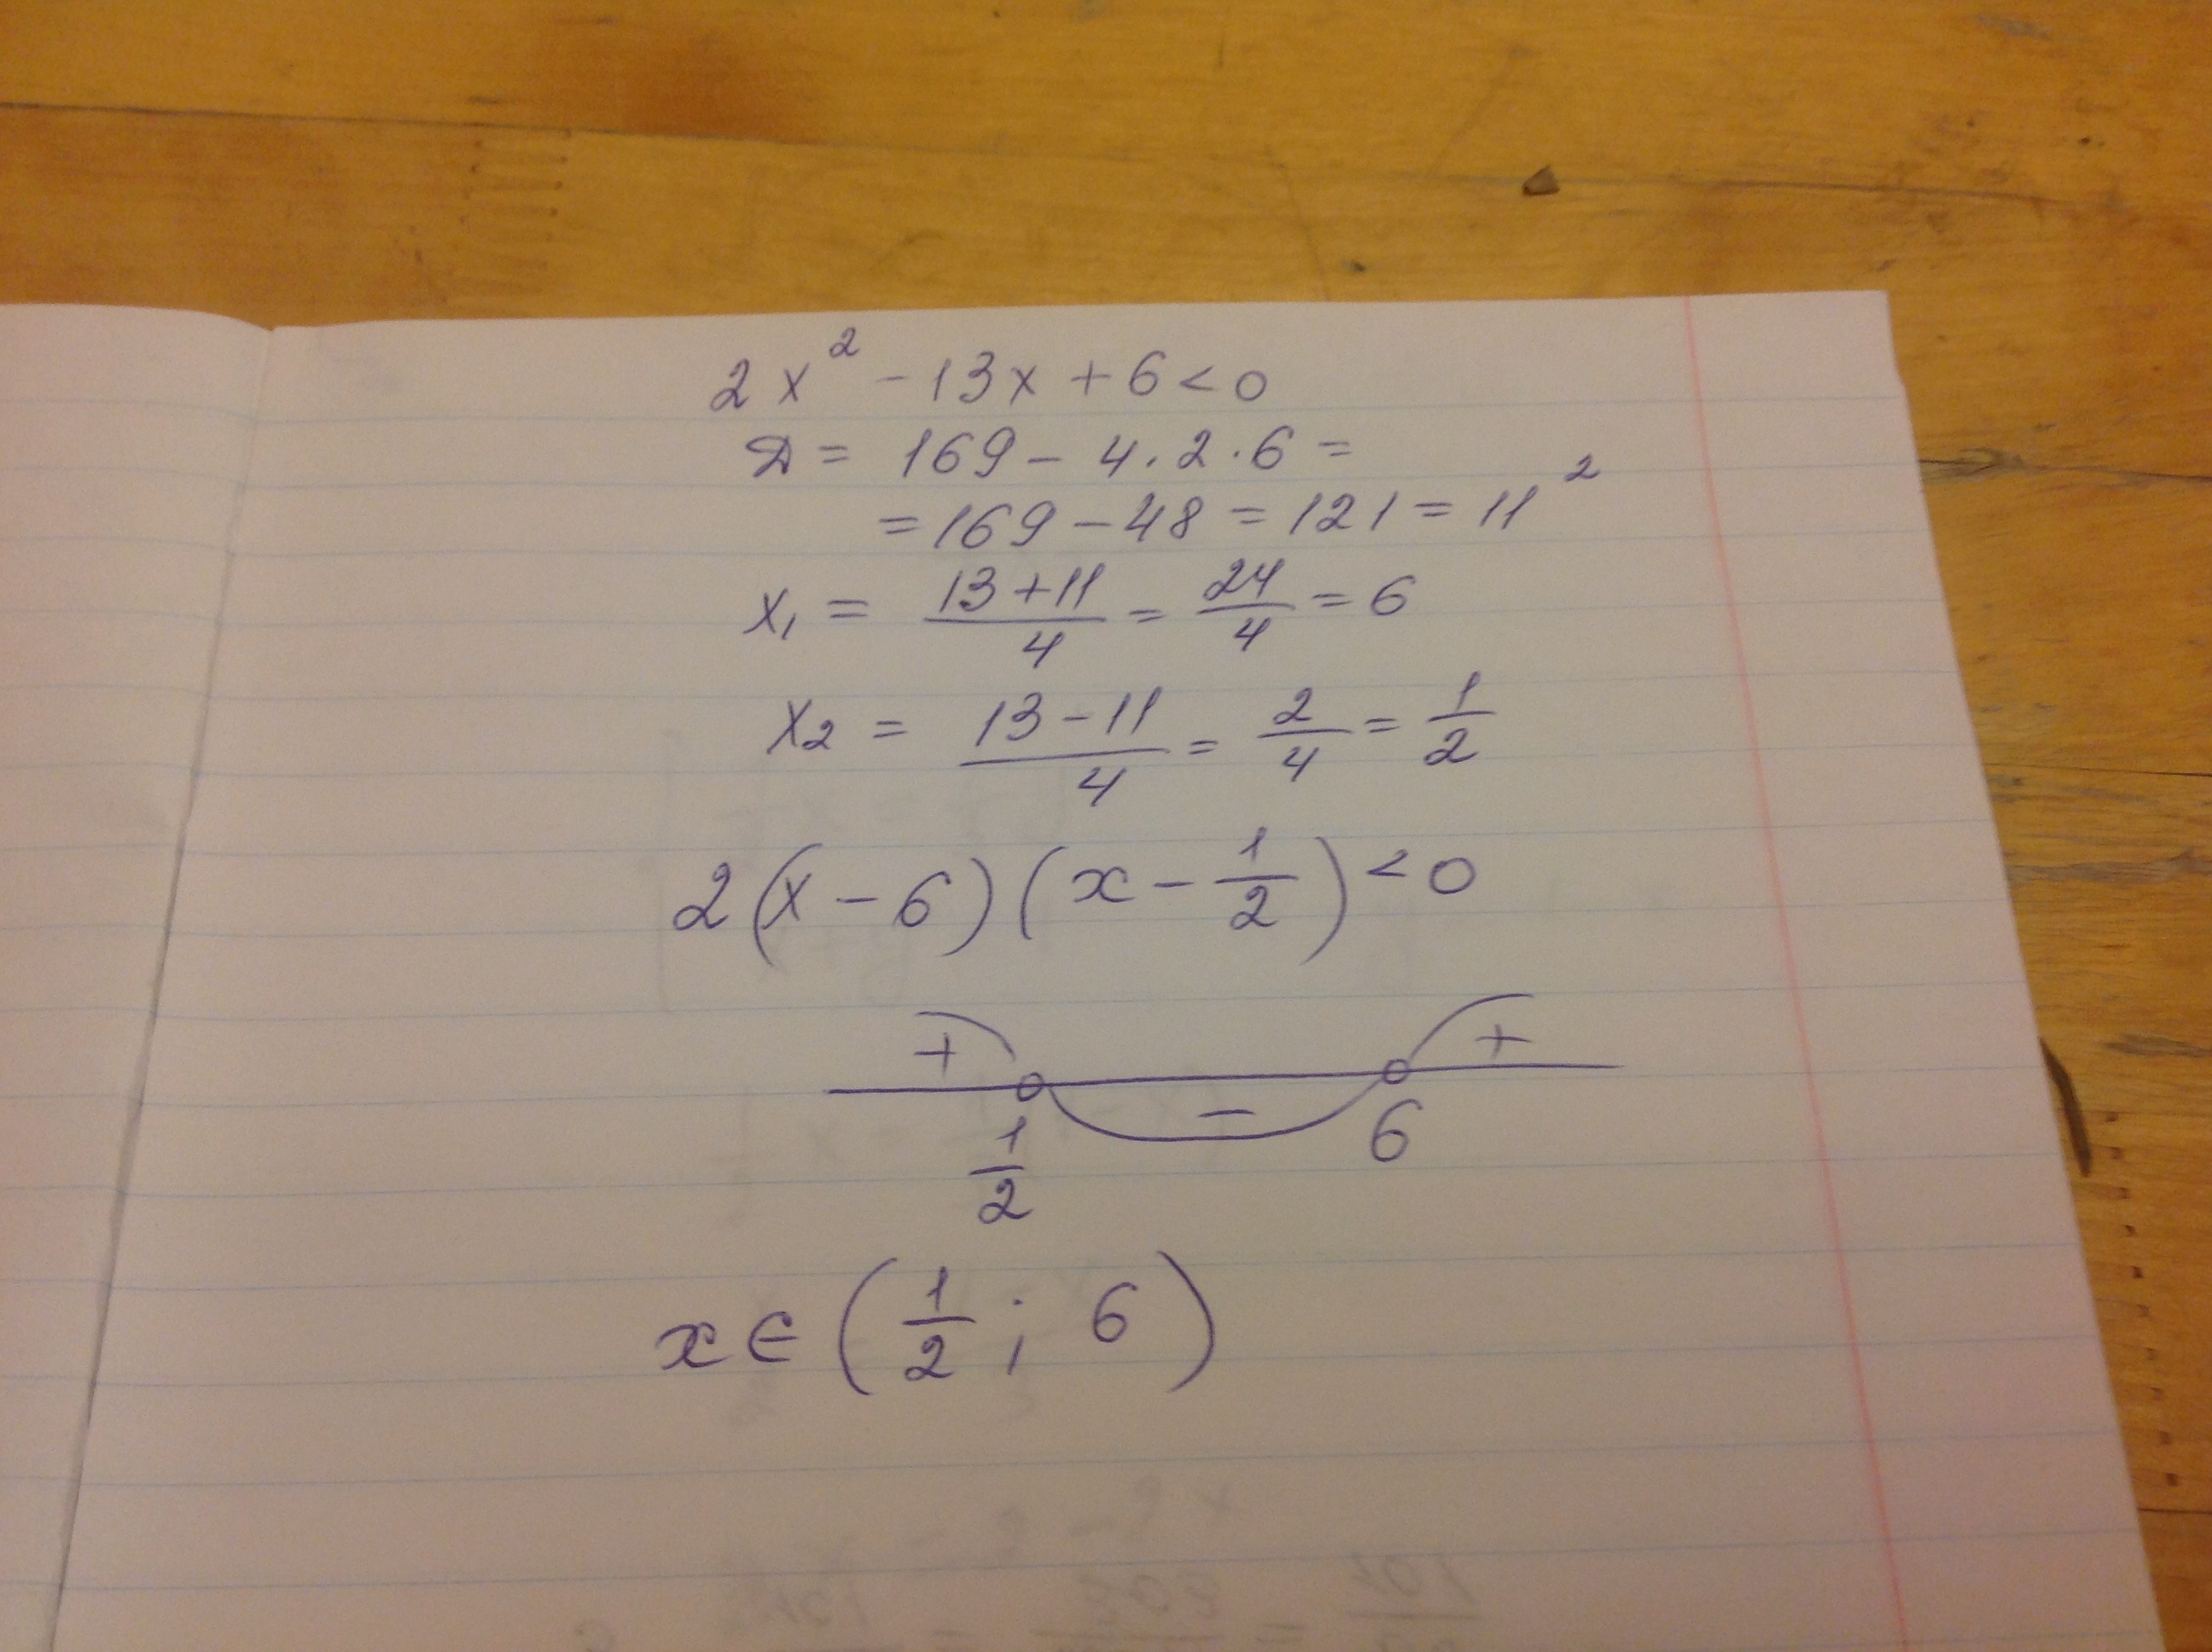 2x² - 13x + 6 < 0
D = 169 - 4 · 2 · 6 =
= 169 - 48 = 121 = 11²
x₁ = (13 + 11)/4 = 24/4 = 6
x₂ = (13 - 11)/4 = 2/4 = 1/2
2(x - 6)(x - 1/2) < 0
+ - +
1/2 6
x ∈ (1/2 ; 6)